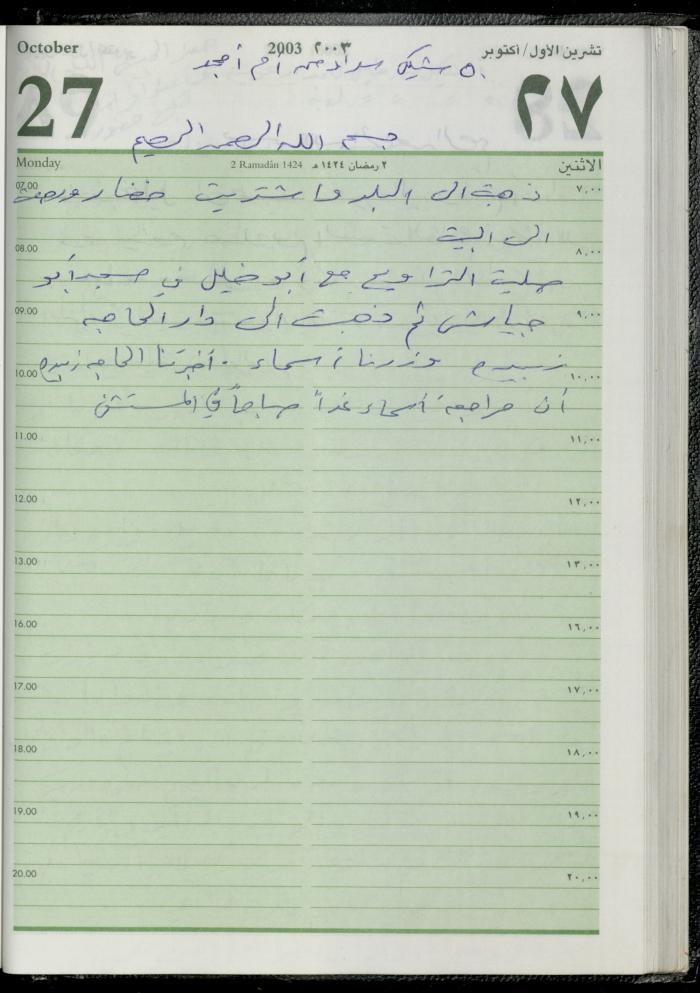 October 2003 ٢٠٠٣ تشرين الأول/أكتوبر
٥٠ شيكل سداد من أم أمجد
27 ٢٧
بسم الله الرحمن الرحيم
Monday 2 Ramadân 1424 ٢ رمضان ١٤٢٤ هـ الاثنين
07.00 ٧,٠٠
ذهبت الى البلد واشتريت خضار ورجعت
الى البيت
08.00 ٨,٠٠
صليت التراويح مع أبو خليل في مسجد أبو
09.00 ٩,٠٠
جياش ثم ذهبت الى دار الحاجه
زبيده وزرنا أسماء . أخبرتنا الحاجه زبيده
10.00 ١٠,٠٠
أن مراجعة أسماء غداً صباحاً في المستشفى
11.00 ١١,٠٠
12.00 ١٢,٠٠
13.00 ١٣,٠٠
16.00 ١٦,٠٠
17.00 ١٧,٠٠
18.00 ١٨,٠٠
19.00 ١٩,٠٠
20.00 ٢٠,٠٠